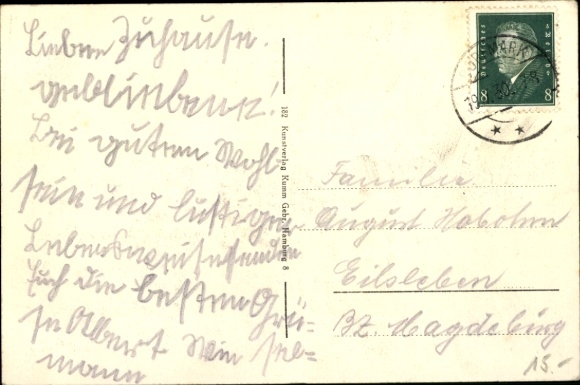 Lieben Zuhause.
gebliebenen!
Bei gutem Wohl-
sein und lustiger
Lebensweise senden
Euch die besten Grü-
se Albert
mann
182 Kunstverlag Kumm Gebr. Hamburg 8
Deutsches Reich
8 8
Familie
August
Eilsleben
Bz. Magdeburg
15.-